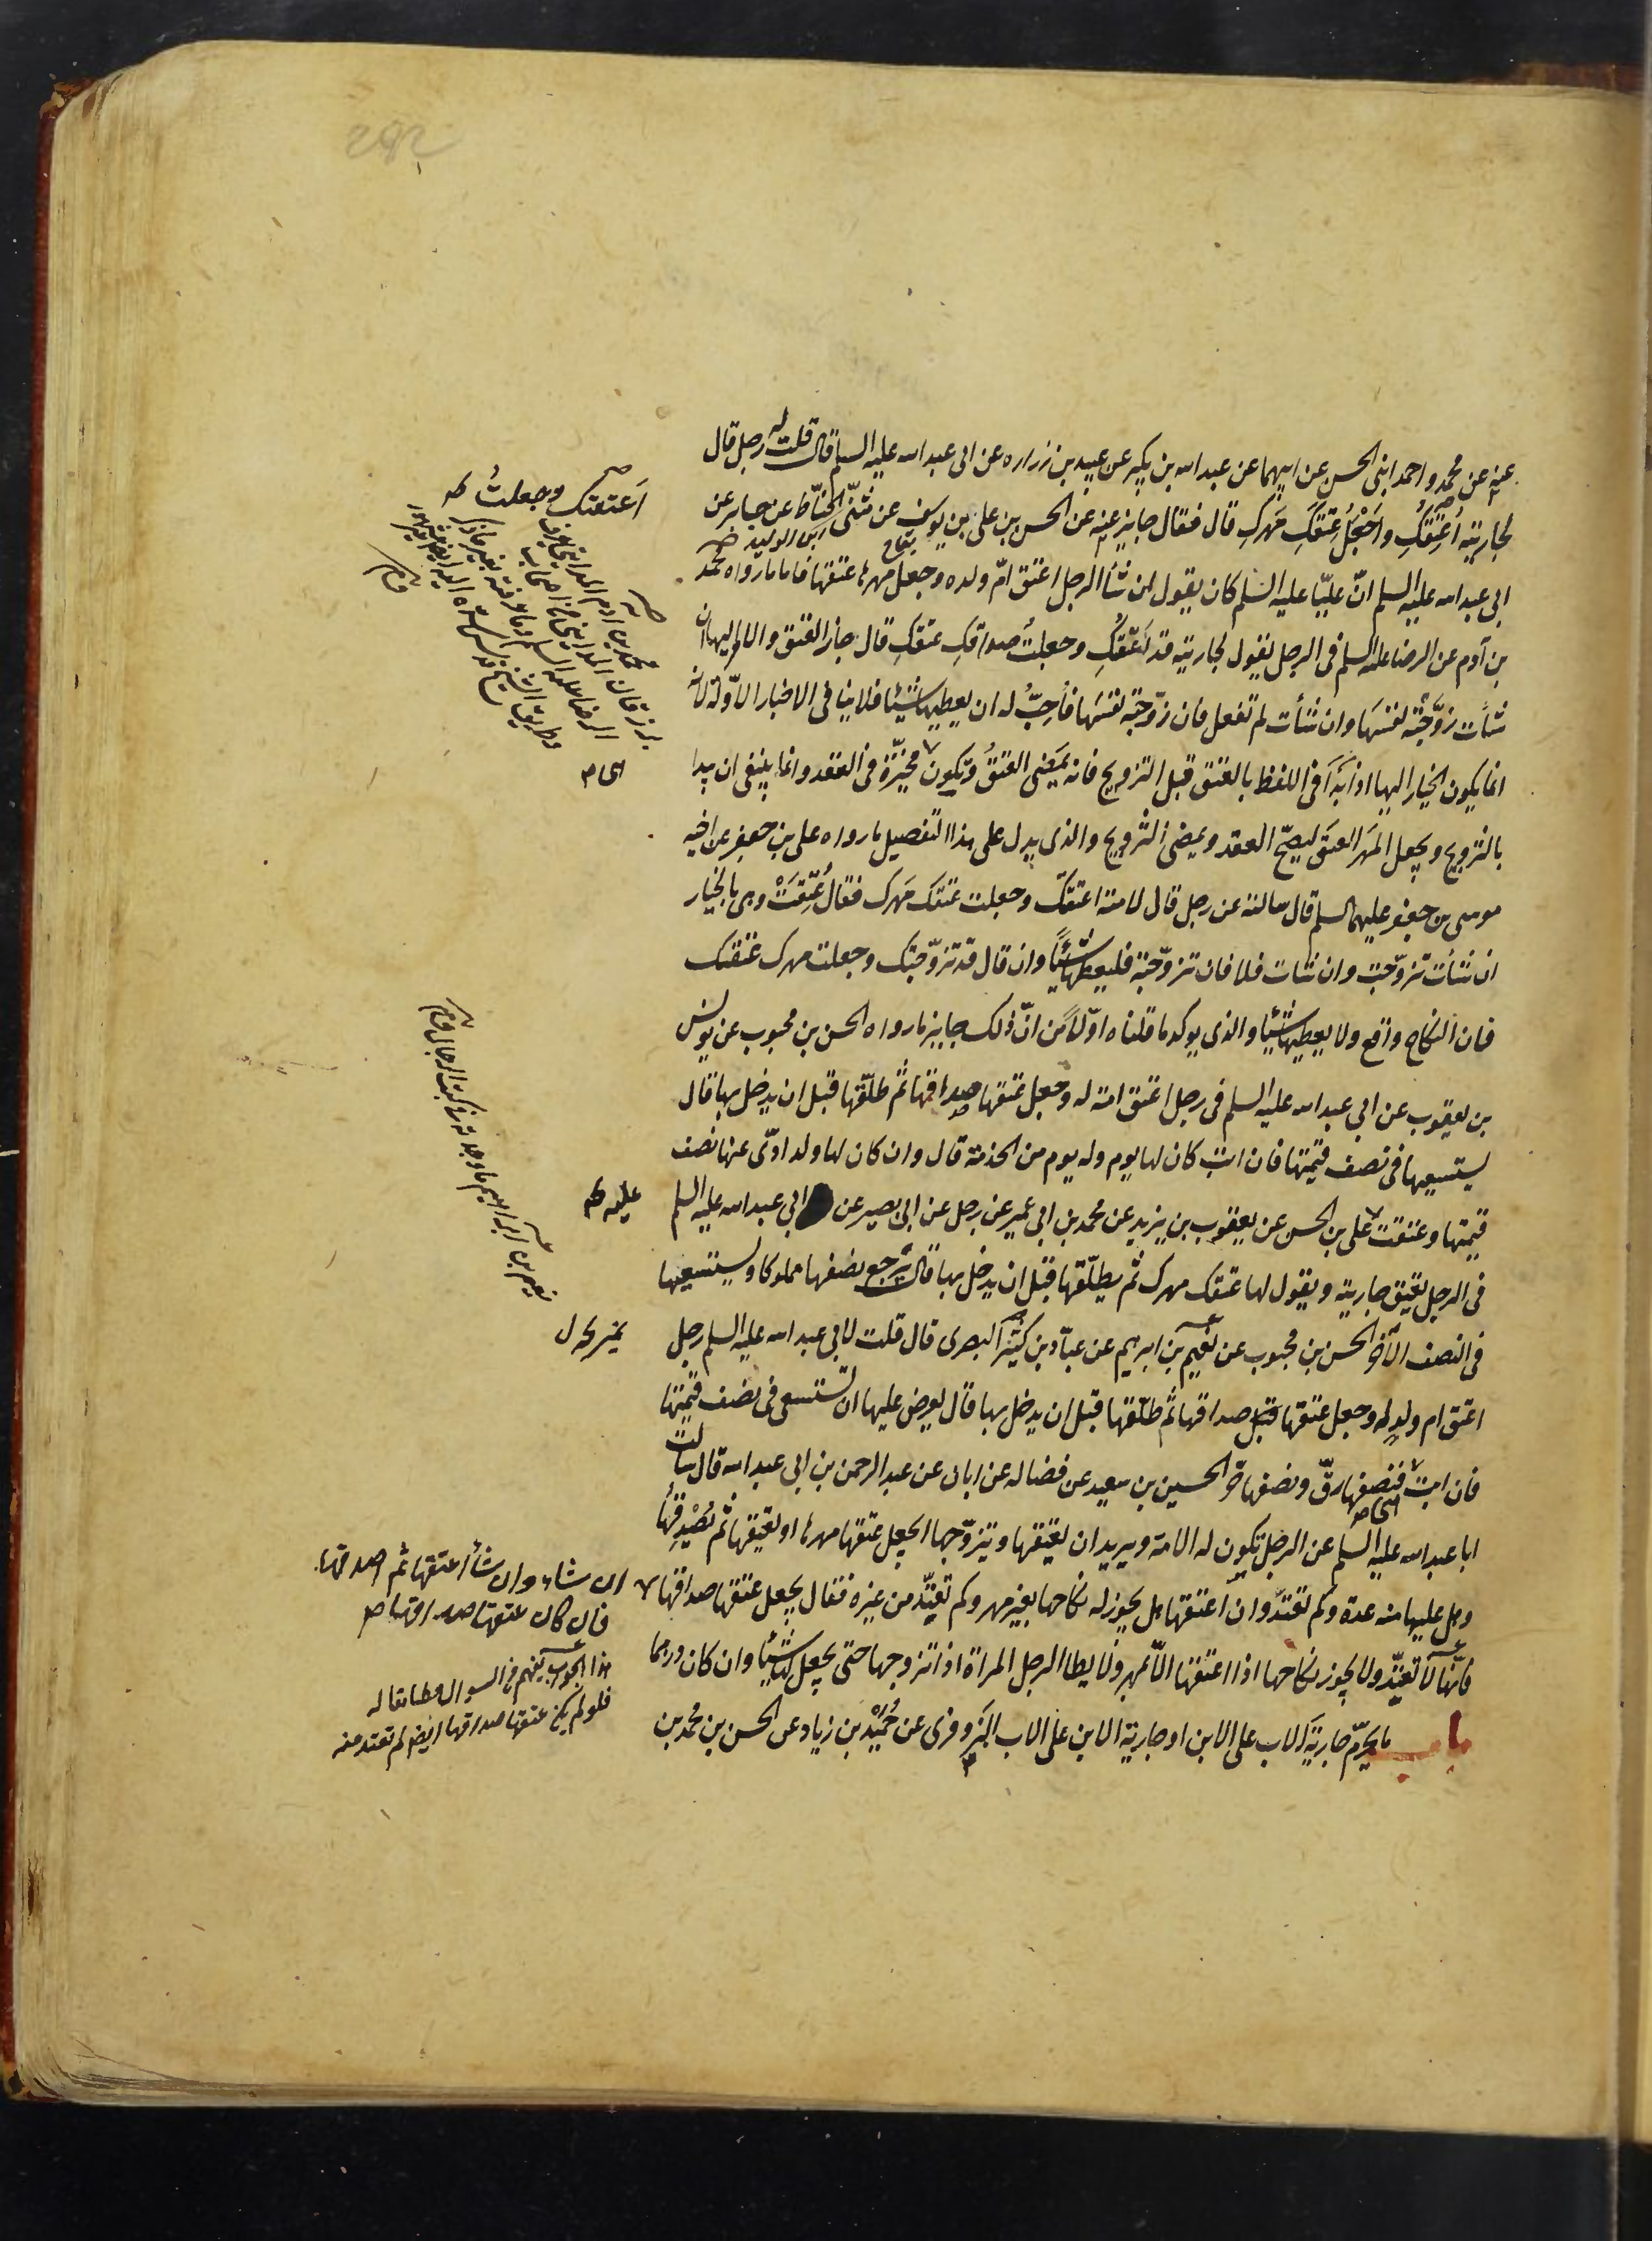 282
عنه عن محمد واحمد ابنى الحسن عن ابيهما عن عبد الله بن بكير عن عبيد بن زراره عن ابى عبد الله عليه السلم قال قلت له رجل قال
لجاريته اُعتِقُكِ واَجْعَلُ عِتْقَكِ مَهركِ قال فقال جايز عنه عن الحسن بن على بن يوسف عن مثنّى الحنّاط عن
ابى عبد الله عليه السلم انّ عليّا عليه السلم كان يقول ان شأ الرجل اعتق امّ ولده وجعل مهرها عتقها فاما ما رواه محمد
بن آدم عن الرضا عليه السلم فى الرجل يقول لجاريته قد اَعتَقتُكِ وجعلتُ صداقكِ عتقكِ قال جاز العتق والامر اليها ان
شأت زوّجته نفسَها وان شأت لم تفعل فان زوّجته نفسَها فاُحِبُّ له ان يعطيها شيئا فلا ينافى الاخبار الاوّلة لانه
انما يكون الخيار اليها اذا بَدَأ فى اللفظ بالعتق قبل التزويج فانه يَمضى العتقُ وتكون مخيّرة فى العقد وانما ينبغى ان يبدا
بالتزويج ويجعل المَهر العتقَ ليصحّ العقد ويمضى التزويج والذى يدل على هذا التفصيل ما رواه على بن جعفر عن اخيه
موسى بن جعفر عليهما السلم قال سالته عن رجل قال لامته اعتقتك وجعلت عتقك مَهرك فقال عُتِقَتْ وهى بالخيار
ان شأت تزوّجت وان شأت فلا فان تزوّجته فليعطها شيئًا وان قال قد تزوّجتك وجعلت مهرك عتقك
فان النكاح واقع ولا يعطيها شيئا والذى يوكد ما قلناه اوّلًا من انّ ذلك جايز ما رواه الحسن بن محبوب عن يونس
بن يعقوب عن ابى عبد الله عليه السلم فى رجل اعتق امته له وجعل عتقها صداقها ثم طلّقها قبل ان يدخل بها قال
يستسعيها فى نصف قيمتها فان ابت كان لها يوم وله يوم من الخدمة قال وان كان لها ولد ادّى عنها نصف
قيمتها وعتقت على بن الحسن عن يعقوب بن يزيد عن محمد بن ابى عمير عن رجل عن ابى بصير عن ابى عبد الله عليه السلم
فى الرجل يعتق جاريته ويقول لها عتقك مهرك ثم يطلّقها قبل ان يدخل بها قال يرجع نصفها مملوكا ويستسعيها
فى النصف الآخر الحسن بن محبوب عن نعيم بن ابرهيم عن عبّاد بن كثير البصرى قال قلت لابى عبد الله عليه السلم رجل
اعتق ام ولد له وجعل عتقها صداقها ثم طلّقها قبل ان يدخل بها قال يعرض عليها ان تستسعى فى نصف قيمتها
فان ابت فنصفها رقّ ونصفها حرّ الحسين بن سعيد عن فضاله عن ابان عن عبد الرحمن بن ابى عبد الله قال سالت
ابا عبد الله عليه السلم عن الرجل تكون له الامة ويريد ان يعتقها ويتزوّجها ايجعل عتقها مهرها او يعتقها ثم يُصْدِقُها
وهل عليها منه عدة وكم تعتدّ وان اعتقها هل يجوز له نكاحها بغير مهر وكم تعتدّ من غيره فقال يجعل عتقها صداقها
فانّها لا تعتدّ ولا يجوز نكاحها اذا اعتقها الا بمهر ولا يطا الرجل المراة اذا تزوجها حتى يجعل لها شيئا وان كان درهما
باب ما يحرّم جارية الاب على الابن او جارية الابن على الاب البَزَوفرى عن حُمَيْد بن زياد عن الحسن بن محمد بن
اَعتقتك وجعلتُ
ان شاء وان شأ اعتقها ثم اصدقها
فان كان عتقها صداقها
هذا الجواب يفهم من السوال مطابقا له
فلو لم يكن عتقها صداقها ايضا لم تعتد منه